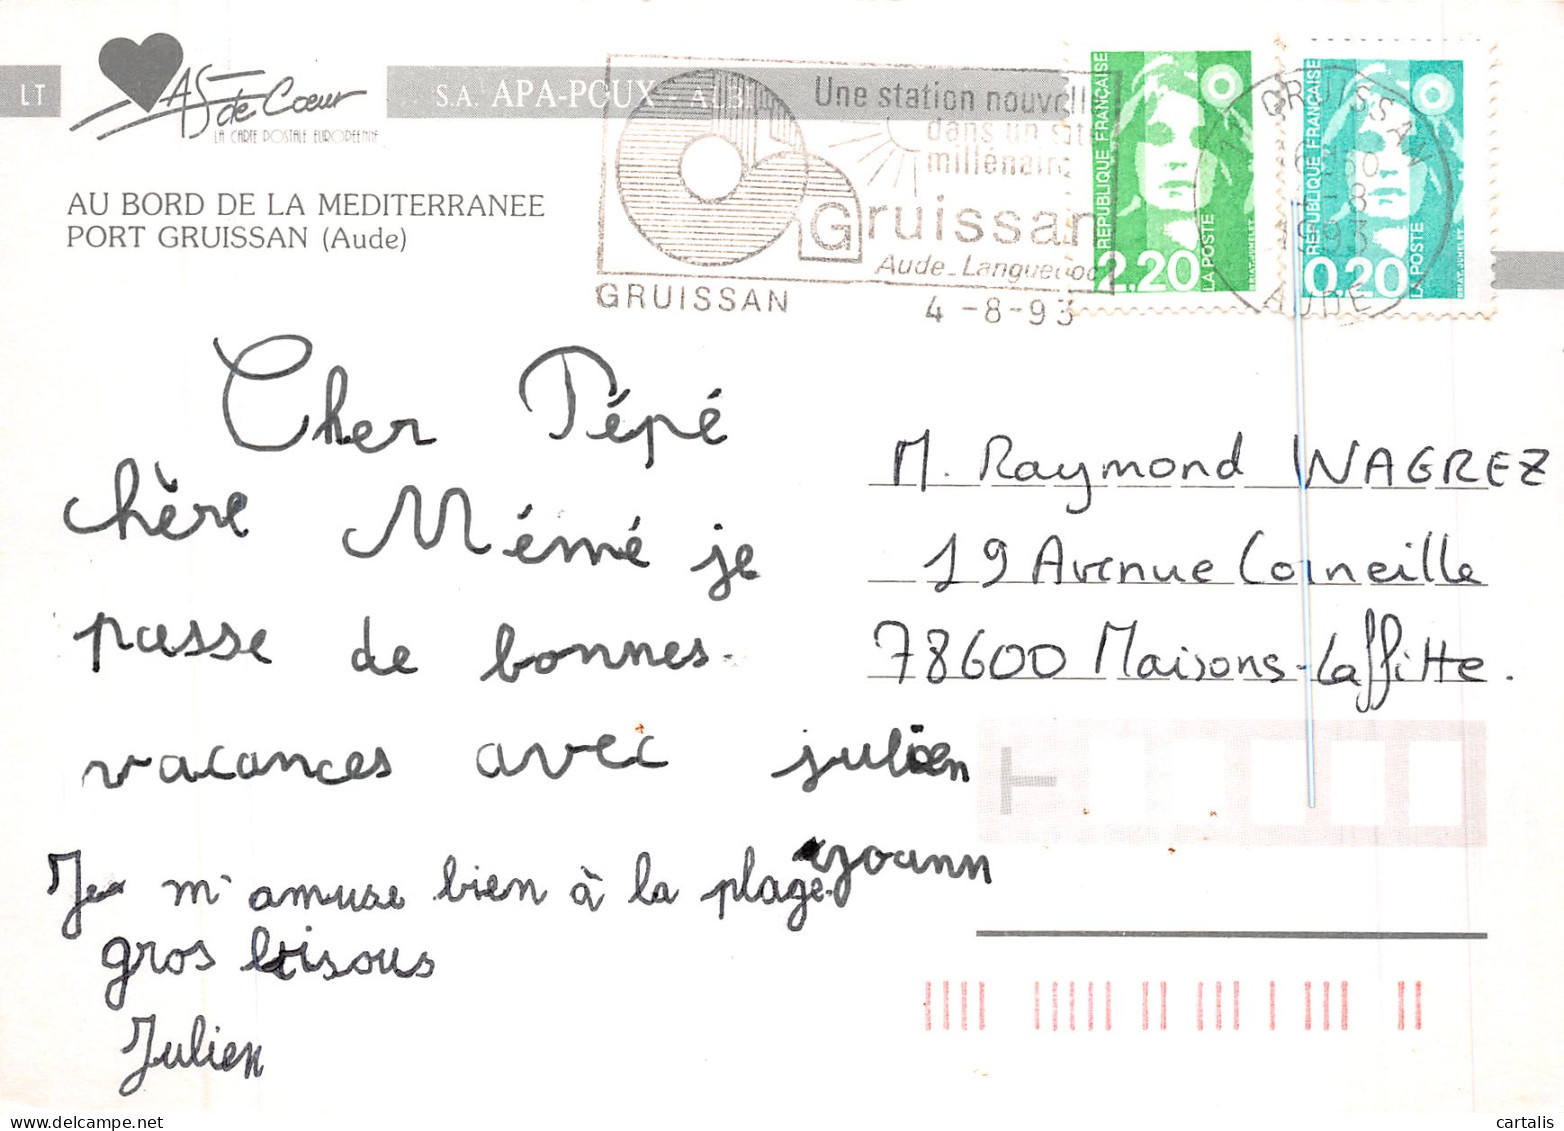 LT
AS de Cœur
LA CARTE POSTALE EUROPEENNE
S.A. APA-POUX - ALBI
AU BORD DE LA MEDITERRANEE
PORT GRUISSAN (Aude)
Une station nouvelle
dans un site
millénaire
Gruissan
Aude_Languedoc
GRUISSAN
4-8-93
REPUBLIQUE FRANÇAISE
2,20
LA POSTE
REPUBLIQUE FRANÇAISE
0,20
LA POSTE
GRUISSAN
AUDE
Cher Pépé
chère Mémé je
passe de bonnes
vacances avec julien
yoann
Je m'amuse bien à la plage.
gros bisous
Julien
M. Raymond WAGREZ
19 Avenue Corneille
78600 Maisons-Laffitte.
cartalis